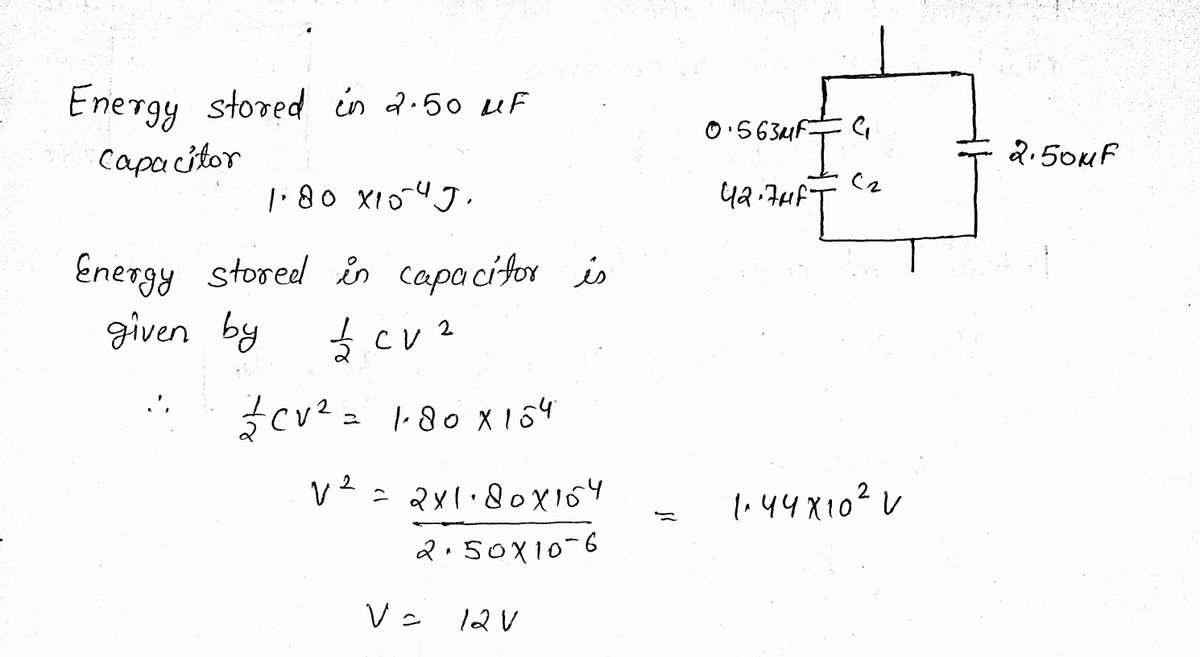 Energy stored in 2.50 μF
capacitor
1.80 x10⁻⁴ J.
Energy stored in capacitor is
given by 1/2 CV²
∴ 1/2 CV² = 1.80 x 10⁻⁴
V² = 2x1.80x10⁻⁴ / 2.50x10⁻⁶ = 1.44x10² V
V = 12V
0.563μF C₁
2.50μF
42.7μF C₂